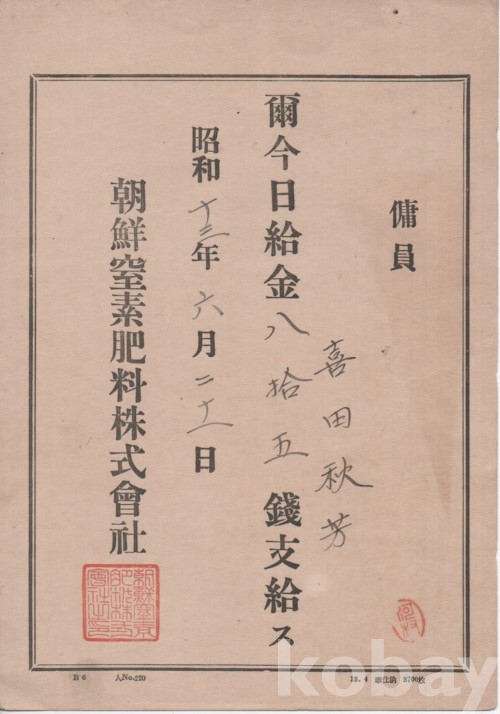 傭員
喜田秋芳
爾今日給金八拾五錢支給ス
昭和十三年六月二十一日
朝鮮窒素肥料株式會社
朝鮮窒素肥料株式會社之印
B 6 人No.220
kobay